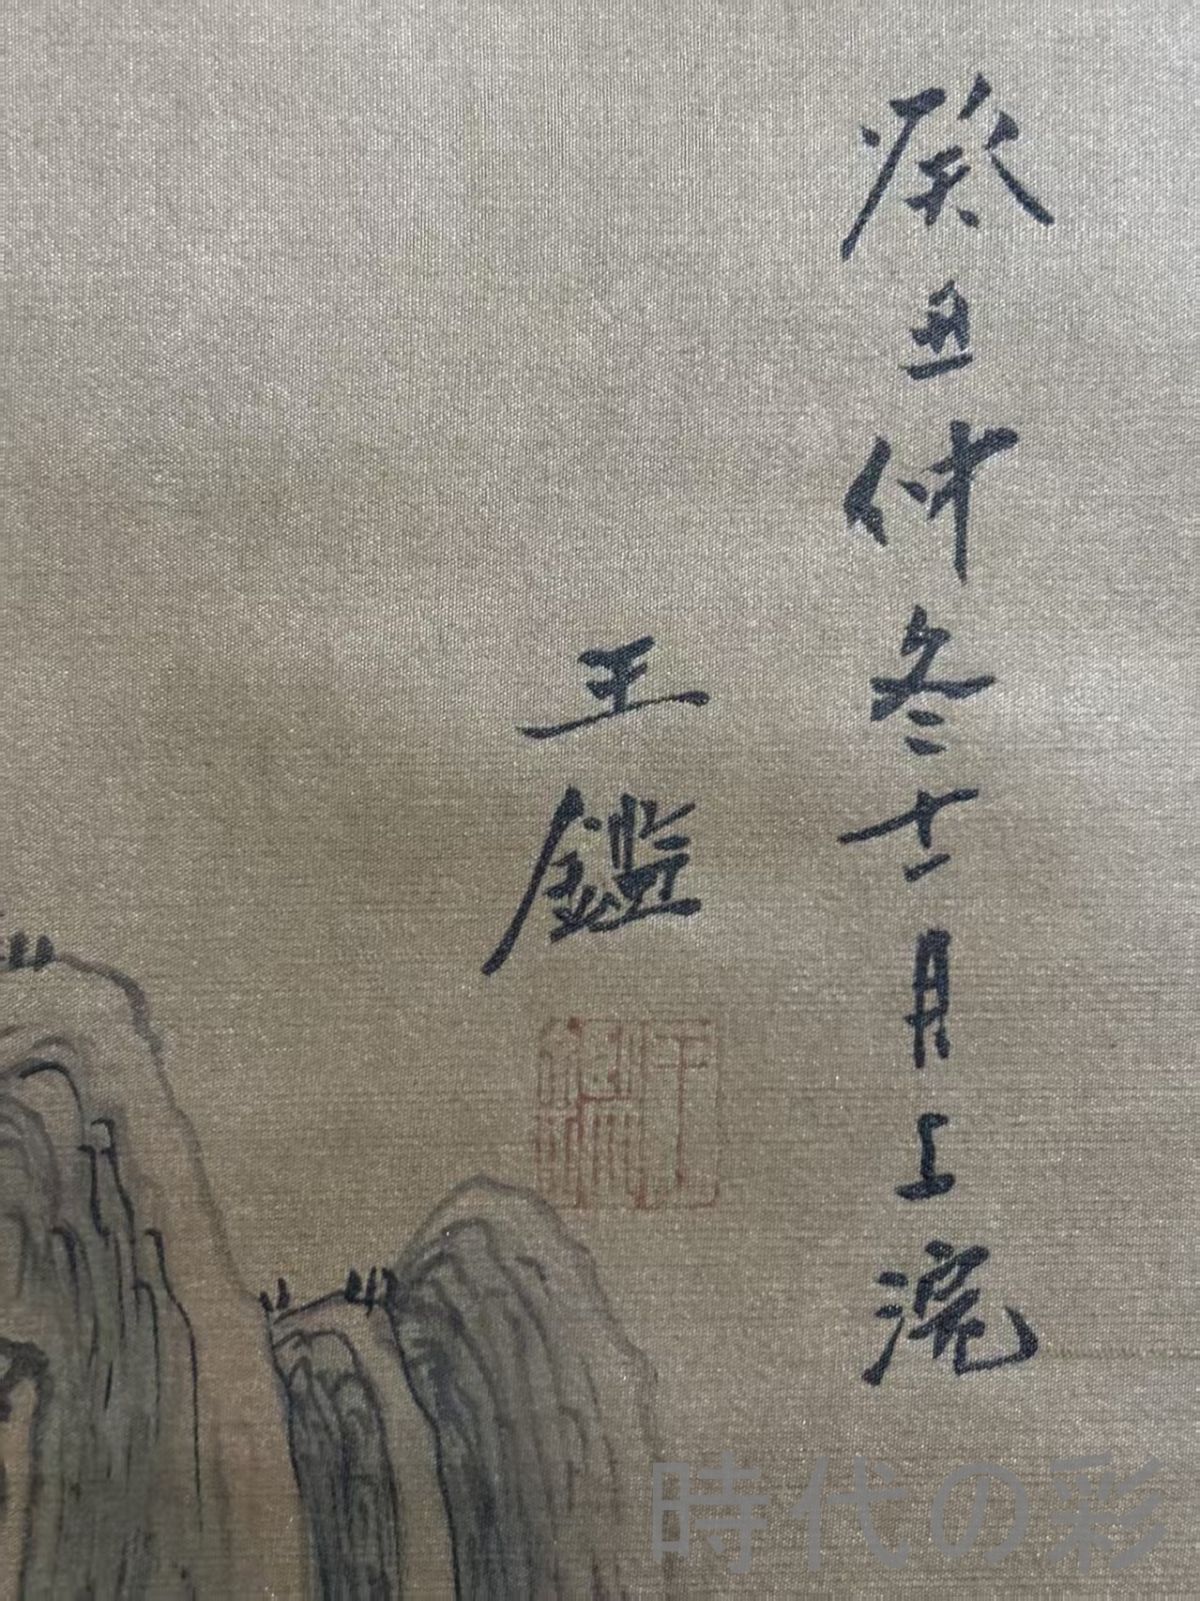 癸丑仲冬十一月上浣
王鑑
時代の彩